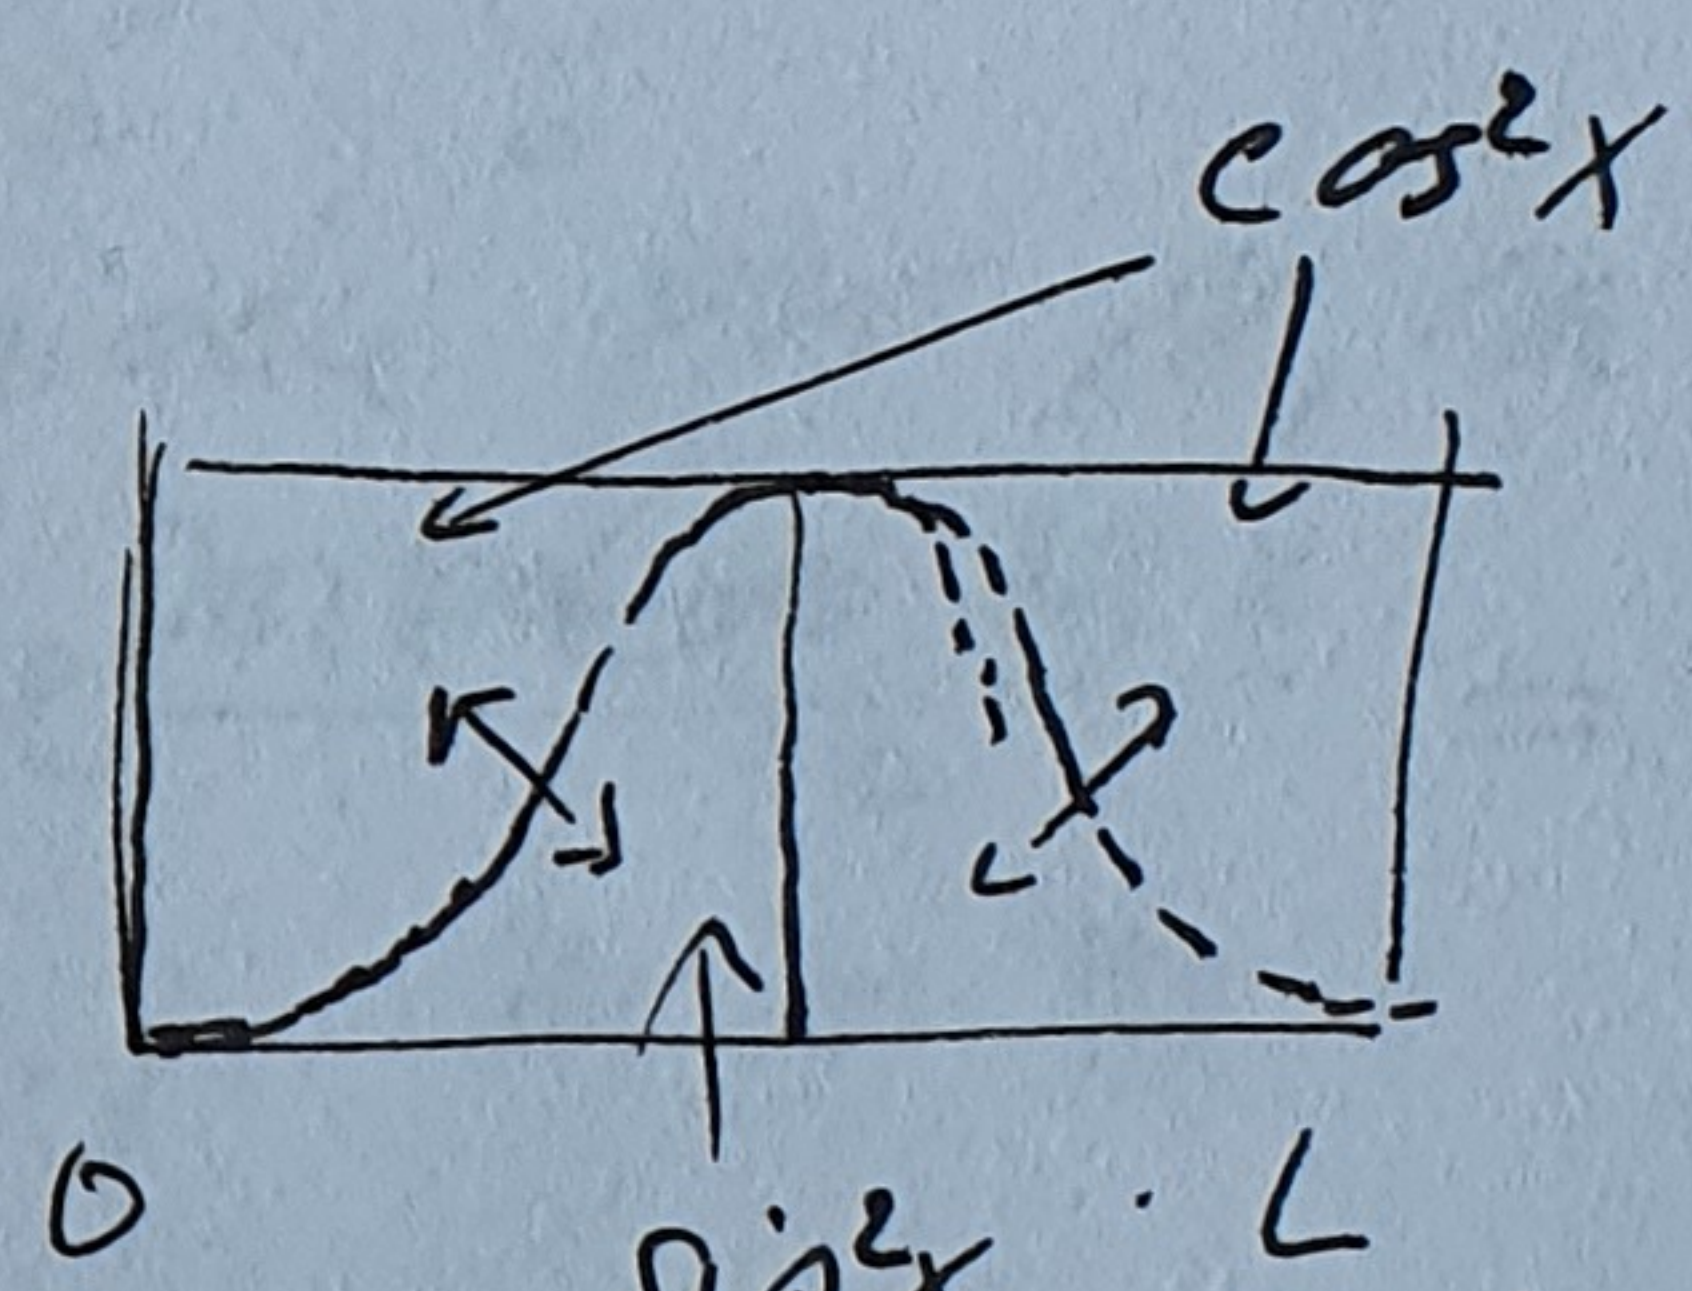 cos²x
0
sin²x
L